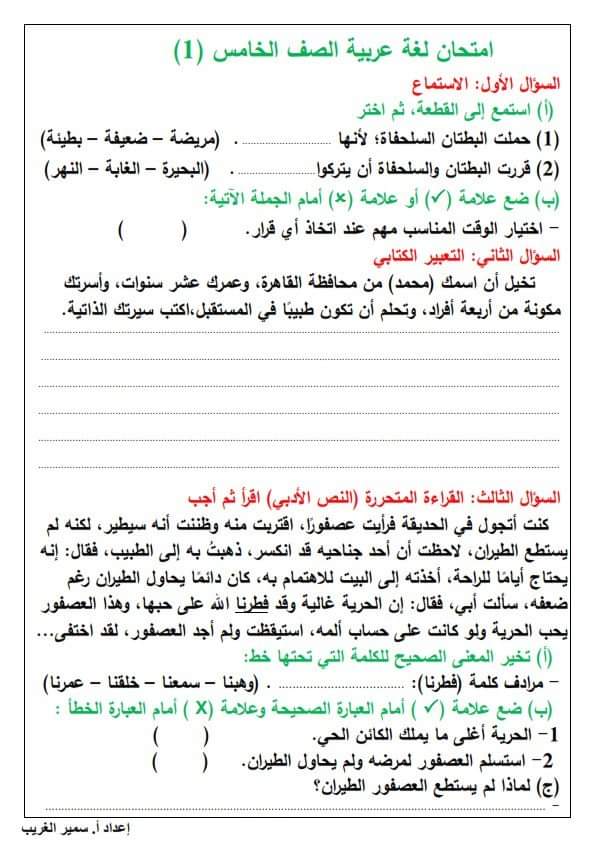 امتحان لغة عربية الصف الخامس (1)
السؤال الأول: الاستماع
(أ) استمع إلى القطعة، ثم اختر
(1) حملت البطتان السلحفاة؛ لأنها .............................. . (مريضة – ضعيفة – بطيئة)
(2) قررت البطتان والسلحفاة أن يتركوا.......................... . (البحيرة – الغابة – النهر)
(ب) ضع علامة (✓) أو علامة (×) أمام الجملة الآتية:
- اختيار الوقت المناسب مهم عند اتخاذ أي قرار. ( )
السؤال الثاني: التعبير الكتابي
تخيل أن اسمك (محمد) من محافظة القاهرة، وعمرك عشر سنوات، وأسرتك
مكونة من أربعة أفراد، وتحلم أن تكون طبيبًا في المستقبل،اكتب سيرتك الذاتية.
السؤال الثالث: القراءة المتحررة (النص الأدبي) اقرأ ثم أجب
كنت أتجول في الحديقة فرأيت عصفورًا، اقتربت منه وظننت أنه سيطير، لكنه لم
يستطع الطيران، لاحظت أن أحد جناحيه قد انكسر، ذهبتُ به إلى الطبيب، فقال: إنه
يحتاج أيامًا للراحة، أخذته إلى البيت للاهتمام به، كان دائمًا يحاول الطيران رغم
ضعفه، سألت أبي، فقال: إن الحرية غالية وقد فطرنا الله على حبها، وهذا العصفور
يحب الحرية ولو كانت على حساب ألمه، استيقظت ولم أجد العصفور، لقد اختفى...
(أ) تخير المعنى الصحيح للكلمة التي تحتها خط:
- مرادف كلمة (فطرنا): .............................. . (وهبنا – سمعنا – خلقنا – عمرنا)
(ب) ضع علامة (✓) أمام العبارة الصحيحة وعلامة (X) أمام العبارة الخطأ :
1- الحرية أغلى ما يملك الكائن الحي. ( )
2- استسلم العصفور لمرضه ولم يحاول الطيران. ( )
(ج) لماذا لم يستطع العصفور الطيران؟
- ..............................
إعداد أ. سمير الغريب